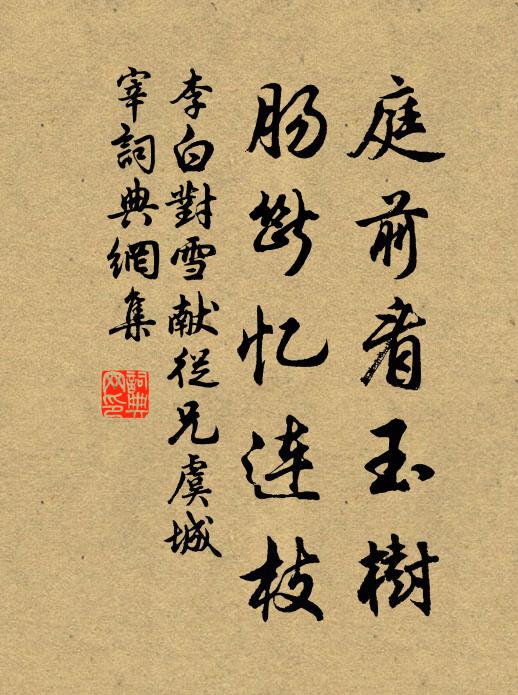 庭前看玉樹
肠斷忆連枝
李白對雪献從兄虞城
宰詞典網集
詞典网印